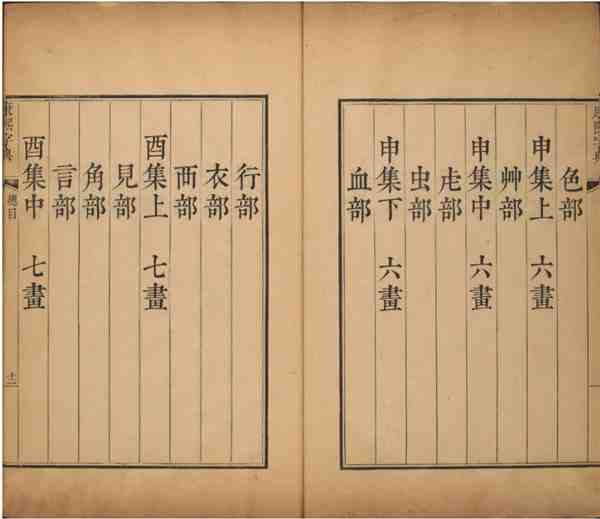 康熙字典
色部
申集上 六畫
艸部
申集中 六畫
虍部
虫部
申集下 六畫
血部
行部
衣部
襾部
酉集上 七畫
見部
角部
言部
酉集中 七畫
康熙字典
總目